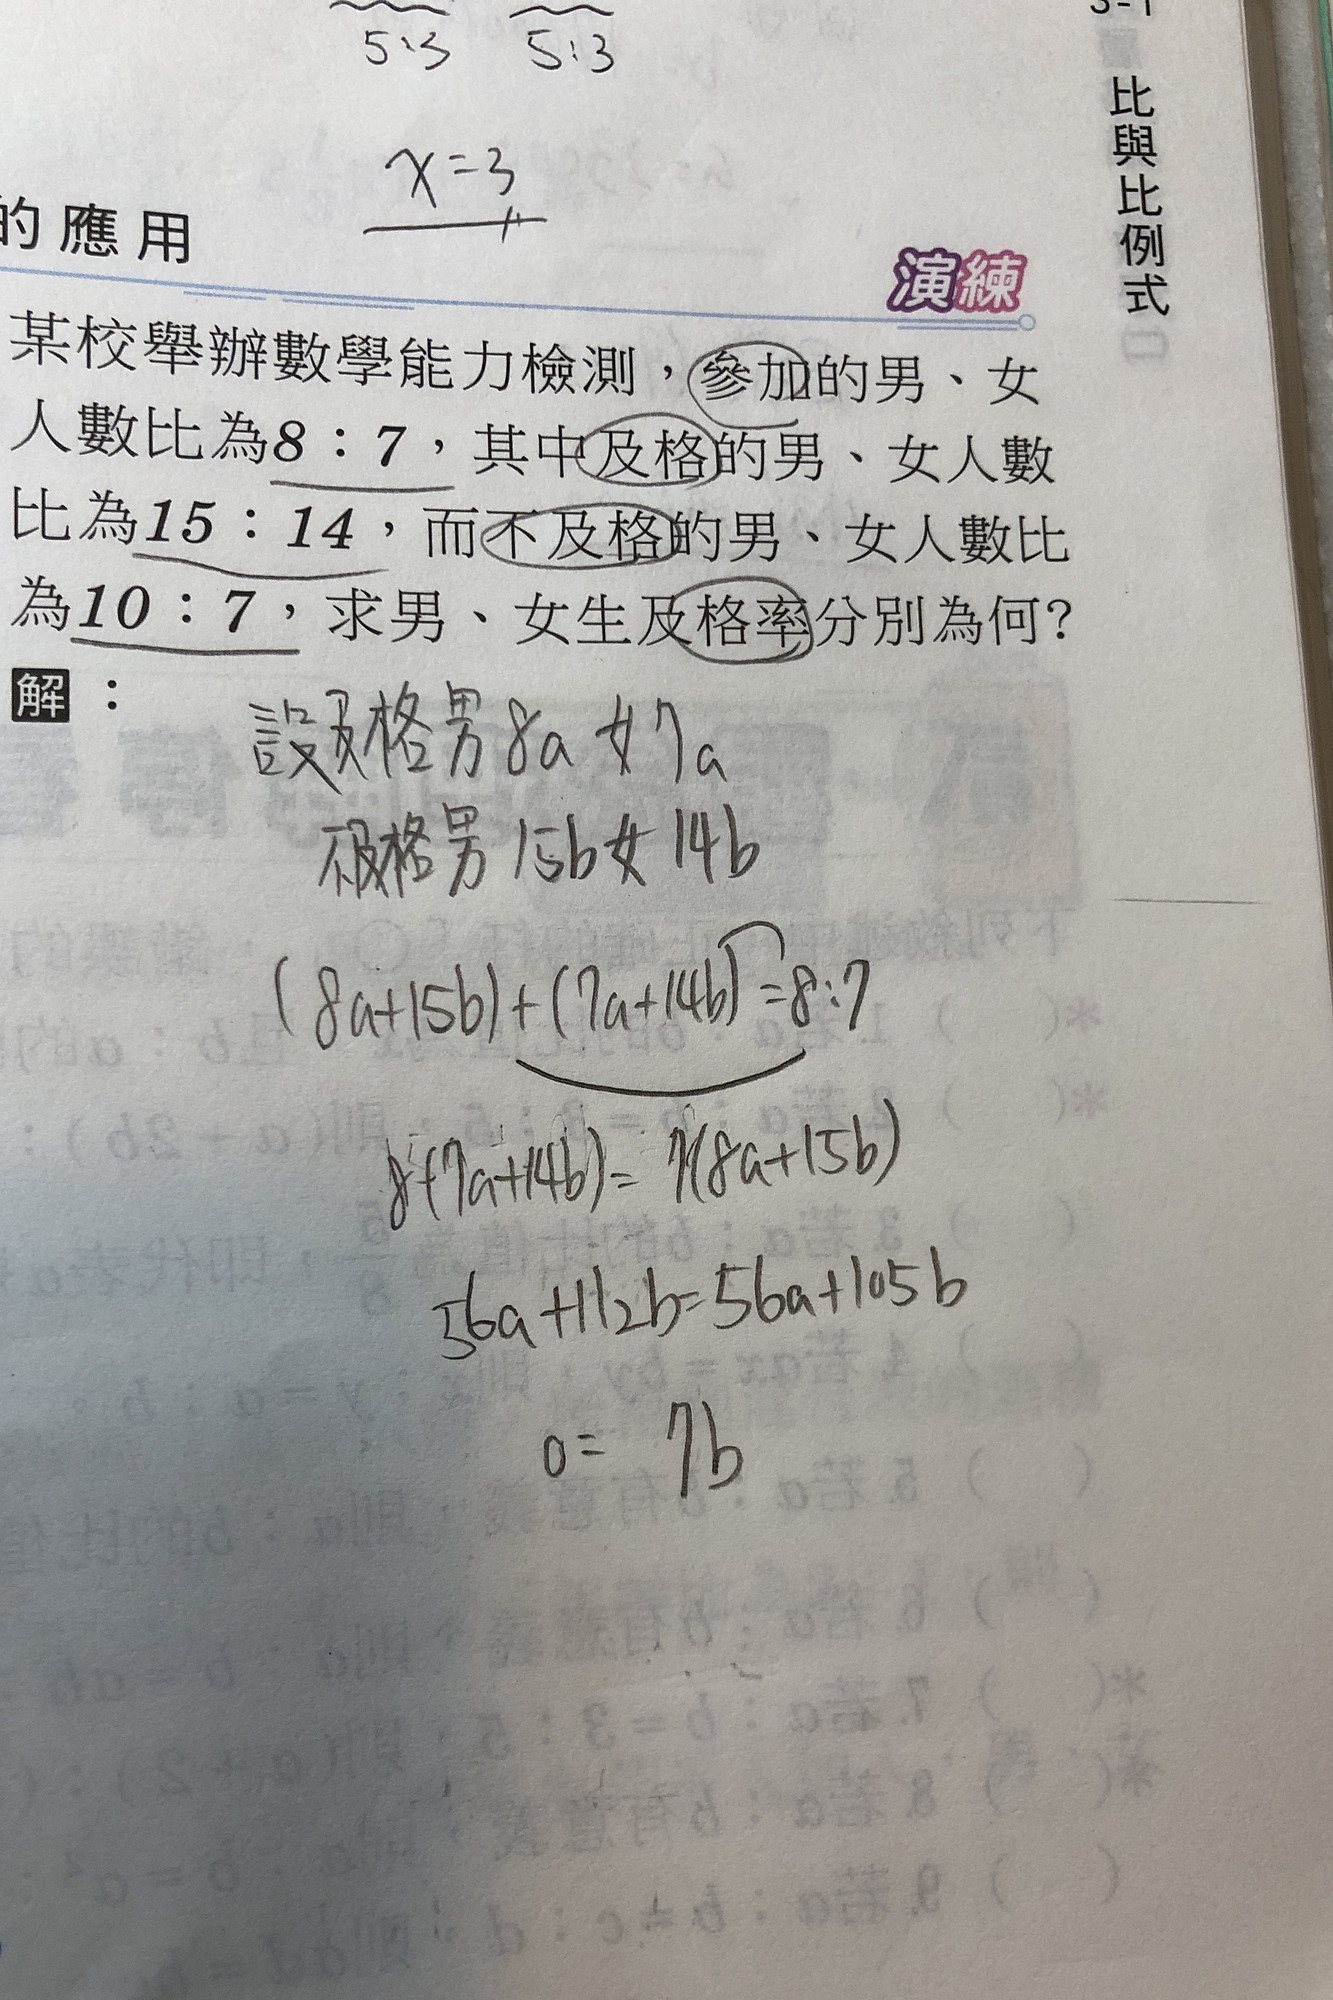 5:3 5:3
3-1
比與比例式
x=3
的應用
演練
某校舉辦數學能力檢測，參加的男、女
人數比為8：7，其中及格的男、女人數
比為15：14，而不及格的男、女人數比
為10：7，求男、女生及格率分別為何？
解：
設及格男8a女7a
不及格男15b女14b
(8a+15b)+(7a+14b)=8:7
8(7a+14b)=7(8a+15b)
56a+112b=56a+105b
0= 7b